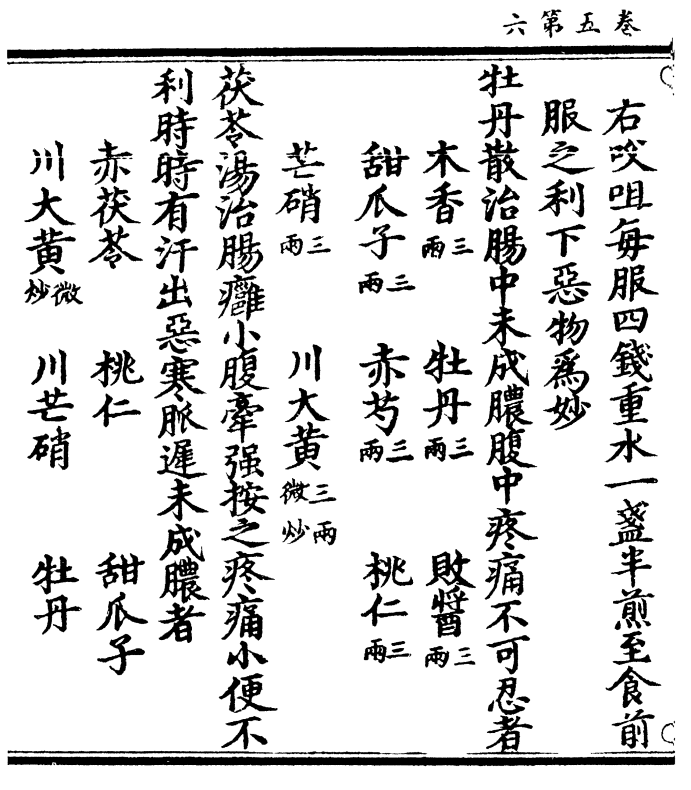 卷五第六
右㕮咀每服四錢重水一盞半煎至食前
服之利下惡物爲妙
牡丹散治腸中未成膿腹中疼痛不可忍者
木香三兩 牡丹三兩 敗醬三兩
甜瓜子三兩 赤芍三兩 桃仁三兩
芒硝三兩 川大黃三兩微炒
茯苓湯治腸癰小腹牽强按之疼痛小便不
利時時有汗出惡寒脈遲未成膿者
赤茯苓 桃仁 甜瓜子
川大黃微炒 川芒硝 牡丹